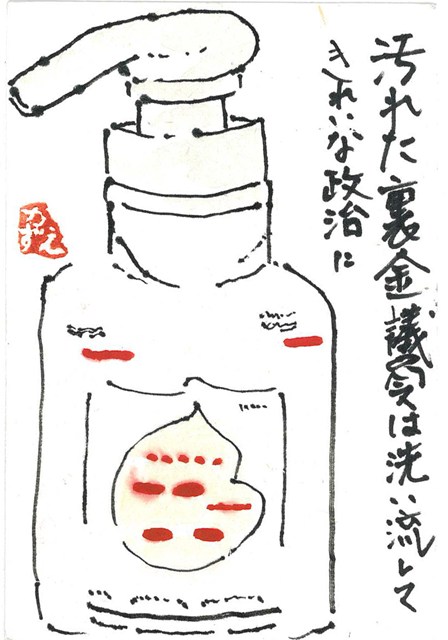 汚れた裏金議会は洗い流して
きれいな政治に
かずえ